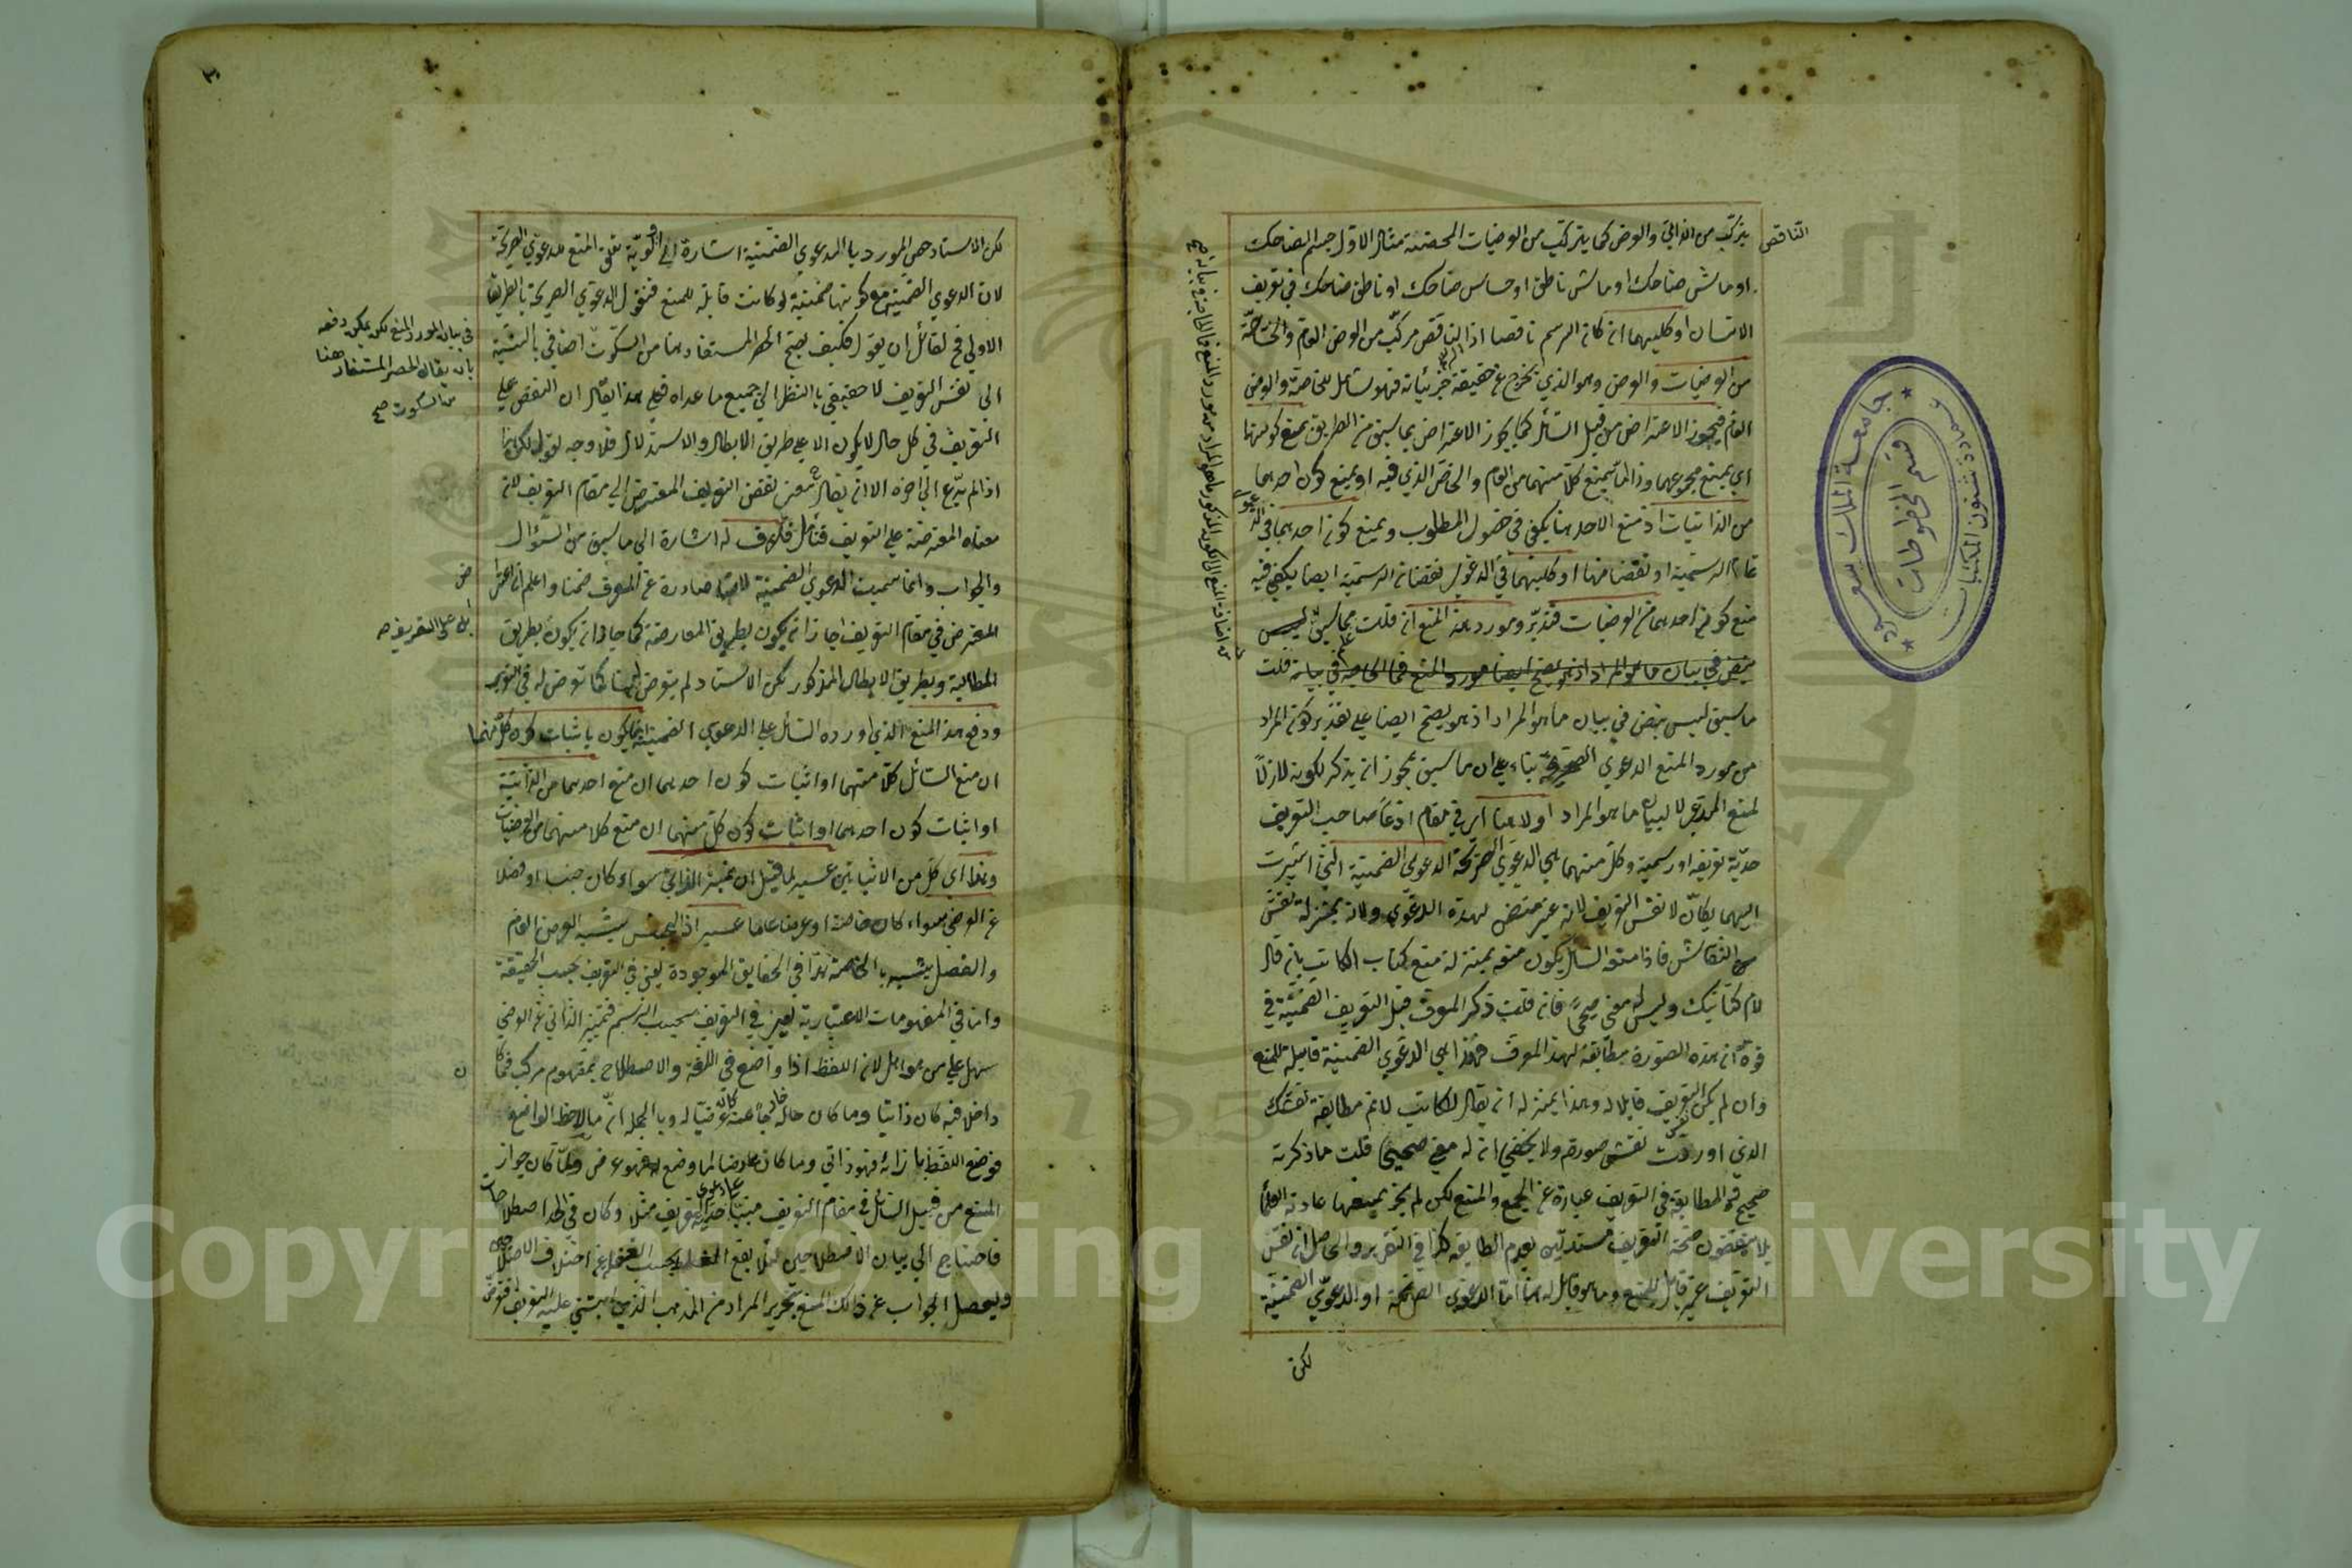 يتركب من الذاتي والعرض كما يتركب من العرضيات المحضة مثال الاول جسم الضاحك
او ماش ضاحك او ماش ناطق او حساس ضاحك او ناطق ضاحك في تعريف
الانسان او كليهما ان كان الرسم ناقصا اذ الناقص مركب من العرض العام والخاصة
من العرضيات والعرض وهو الذي يخرج عن حقيقة جزئياته فهو شامل للخاصة والعرض
العام فيجوز الاعتراض من قبل السائل كما يجوز الاعتراض بما سبق من الطريق بمنع كونهما
اي يمنع مجموعهما وذا لما يمنع كلا منهما من العام والخاص الذي فيه او يمنع كون احدهما
من الذاتيات اذ منع الاحد هنا يكفي في حصول المطلوب ويمنع كون احدهما في
تمام الرسمية او نقضا منها او كليهما في الدعوى نقضان الرسمية ايضا يكفي فيه
منع كون احدهما من العرضيات فتدبر ومورد هذا المنع ان قلت مما سبق ليس
ينص في بيان ما هو المراد اذ هو يصح ايضا مورد المنع فما الحاجة في بيانه قلت
ما سبق ليس بنص في بيان ما هو المراد اذ هو يصح ايضا على تقدير كون المراد
من مورد المنع الدعوى الصريحة بناء على ان ما سبق يجوز ان يذكر لكونه لازما
لمنع المدعي لا لبيان ما هو المراد اولا هنا اي في مقام ادعا صاحب التعريف
حدية تعريفه او رسمية وكل منهما هي الدعوى الصريحة الدعوى الضمنية التي اشيرت
اليهما بكان لا نفس التعريف لانه غير متضمن لهذه الدعوى ولانه بمنزلة نقش
النقاش فاذا منعه السائل يكون منعه بمنزلة منع كتاب الكاتب بان قال
لا نم كتابتك وليس له معنى صحيحا فان قلت ذكر المعرف قبل التعريف الضمنية في
قوة ان هذه الصورة مطابقة لهذا المعرف فهذا هي الدعوى الضمنية قابلة للمنع
وان لم يكن التعريف قابلا له وهذا بمنزلة ان يقال للكاتب لا نم مطابقة نقشك
الذي اوردت نقش صورته ولا يخفى ان له معنى صحيحا قلت ما ذكرته
صحيح فالمطابقة في التعريف عبارة عن الجمع والمنع لكن لم يجز بمنعهما عادة العلماء
بل ينقضون صحة التعريف مستدلين بعدم المطابقة كذا في التقرير والحاصل ان نفس
التعريف غير قابل للمنع وما هو قابل له هنا اما الدعوى الصريحة او الدعوى الضمنية
لكن
الناقص
جامعة الملك سعود
عمادة شئون المكتبات
قسم المخطوطات
لكن الاستاد حصر المورد بالدعوى الضمنية اشارة الى اولوية تعلق المنع للدعوى الصريحة
لان الدعوى الضمنية مع كونها ضمنية لو كانت قابلة للمنع فنقول الدعوى الصريحة بالطريق
الاولى فح لقائل ان يقول فكيف يصح الحصر المستفاد هنا من السكوت اضافي بالنسبة
الى نفس التعريف لا حقيقي بالنظر الى جميع ما عداه فعلى هذا يقال ان النقض على
التعريف في كل حال لا يكون الا على طريق الابطال والاستدلال فلا وجه لقوله لكن
اذا لم يدع الى اخره الا ان يقال معنى نقض التعريف المعترض الى مقام التعريف لان
معناه المعترضة على التعريف فتأمل فلا خلاف له اشارة الى ما سبق من السؤال
والجواب وانما سميت الدعوى الضمنية لانها صادرة عن المعرف ضمنا واعلم ان اعترا
المعترض في مقام التعريف اجاز ان يكون بطريق المعارضة كما جاز ان يكون بطريق
المطالبة وبطريق الابطال المذكور لكن الاستاد لم يتعرض لهما كما تعرض له في التقرير
ودفع هذا المنع الذي اورده السائل على الدعوى الضمنية انما يكون باثبات كون كل منهما
ان منع السائل كلا منهما او اثبات كون احدهما ان منع احدهما من الذاتية
او اثبات كون احدهما او اثبات كون كل منهما ان منع كلا منهما من العرضيات
وهذا اي كل من الاثباتين عسير لما قيل ان تمييز الذاتي سواء كان جنسا او فصلا
عن العرض سواء كان خاصة او عرضا عاما عسير اذ الجنس يشبه العرض العام
والفصل يشبه بالخاصة هذا في الحقايق الموجودة يعني في التعريف بحسب الحقيقة
واما في المفهومات الاعتبارية يعني في التعريف بحسب الاسم فتمييز الذاتي عن العرضي
سهل على من هو اهل لان اللفظ اذا وضع في اللغة والاصطلاح بمفهوم مركب فما كان
داخلا فيه كان ذاتيا وما كان خارجا عنه كان عرضيا له وبالجملة ان ما لاحظ الواضع
فوضع اللفظ بازائه فهو ذاتي وما كان عارضا لما وضع له فهو عرض ولما كان جواز
المنع من قبيل السائل في مقام التعريف مبنيا على دعوى حدية التعريف مثلا وكان في الحد اصطلاحات
فاحتاج الى بيان الاصطلاحين لئلا يقع الغلط بسبب الغفلة عن اختلاف الاصطلاحين
ويحصل الجواب عن ذلك المنع بتحرير المراد من المذهب الذي ابتني عليه التعريف
في بيان المورد المنع لكن يمكن دفعه
بان يقال الحصر المستفاد هنا
من السكوت صح